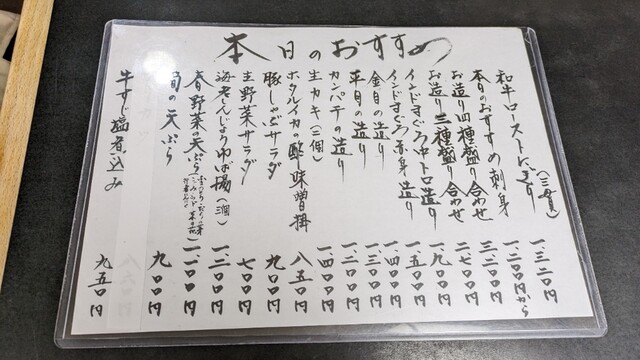 本日のおすすめ
和牛ローストにぎり（三貫）一、三二〇円
本日のおすすめ刺身 一、二〇〇円から
お造り四種盛り合わせ 三、二〇〇円
お造り三種盛り合わせ 二、七〇〇円
インドまぐろ中トロ造り 一、九〇〇円
インドまぐろ赤身造り 一、五〇〇円
金目の造り 一、四〇〇円
平目の造り 一、三〇〇円
カンパチの造り 一、二〇〇円
生カキ（三個）一、四〇〇円
ホタルイカの酢味噌掛 八五〇円
豚しゃぶサラダ 九〇〇円
生野菜サラダ 七〇〇円
海老しんじょうゆば揚（三個）一、二〇〇円
春野菜天ぷら 一、一〇〇円
旬の天ぷら 九〇〇円
牛すじ塩煮込み 九五〇円